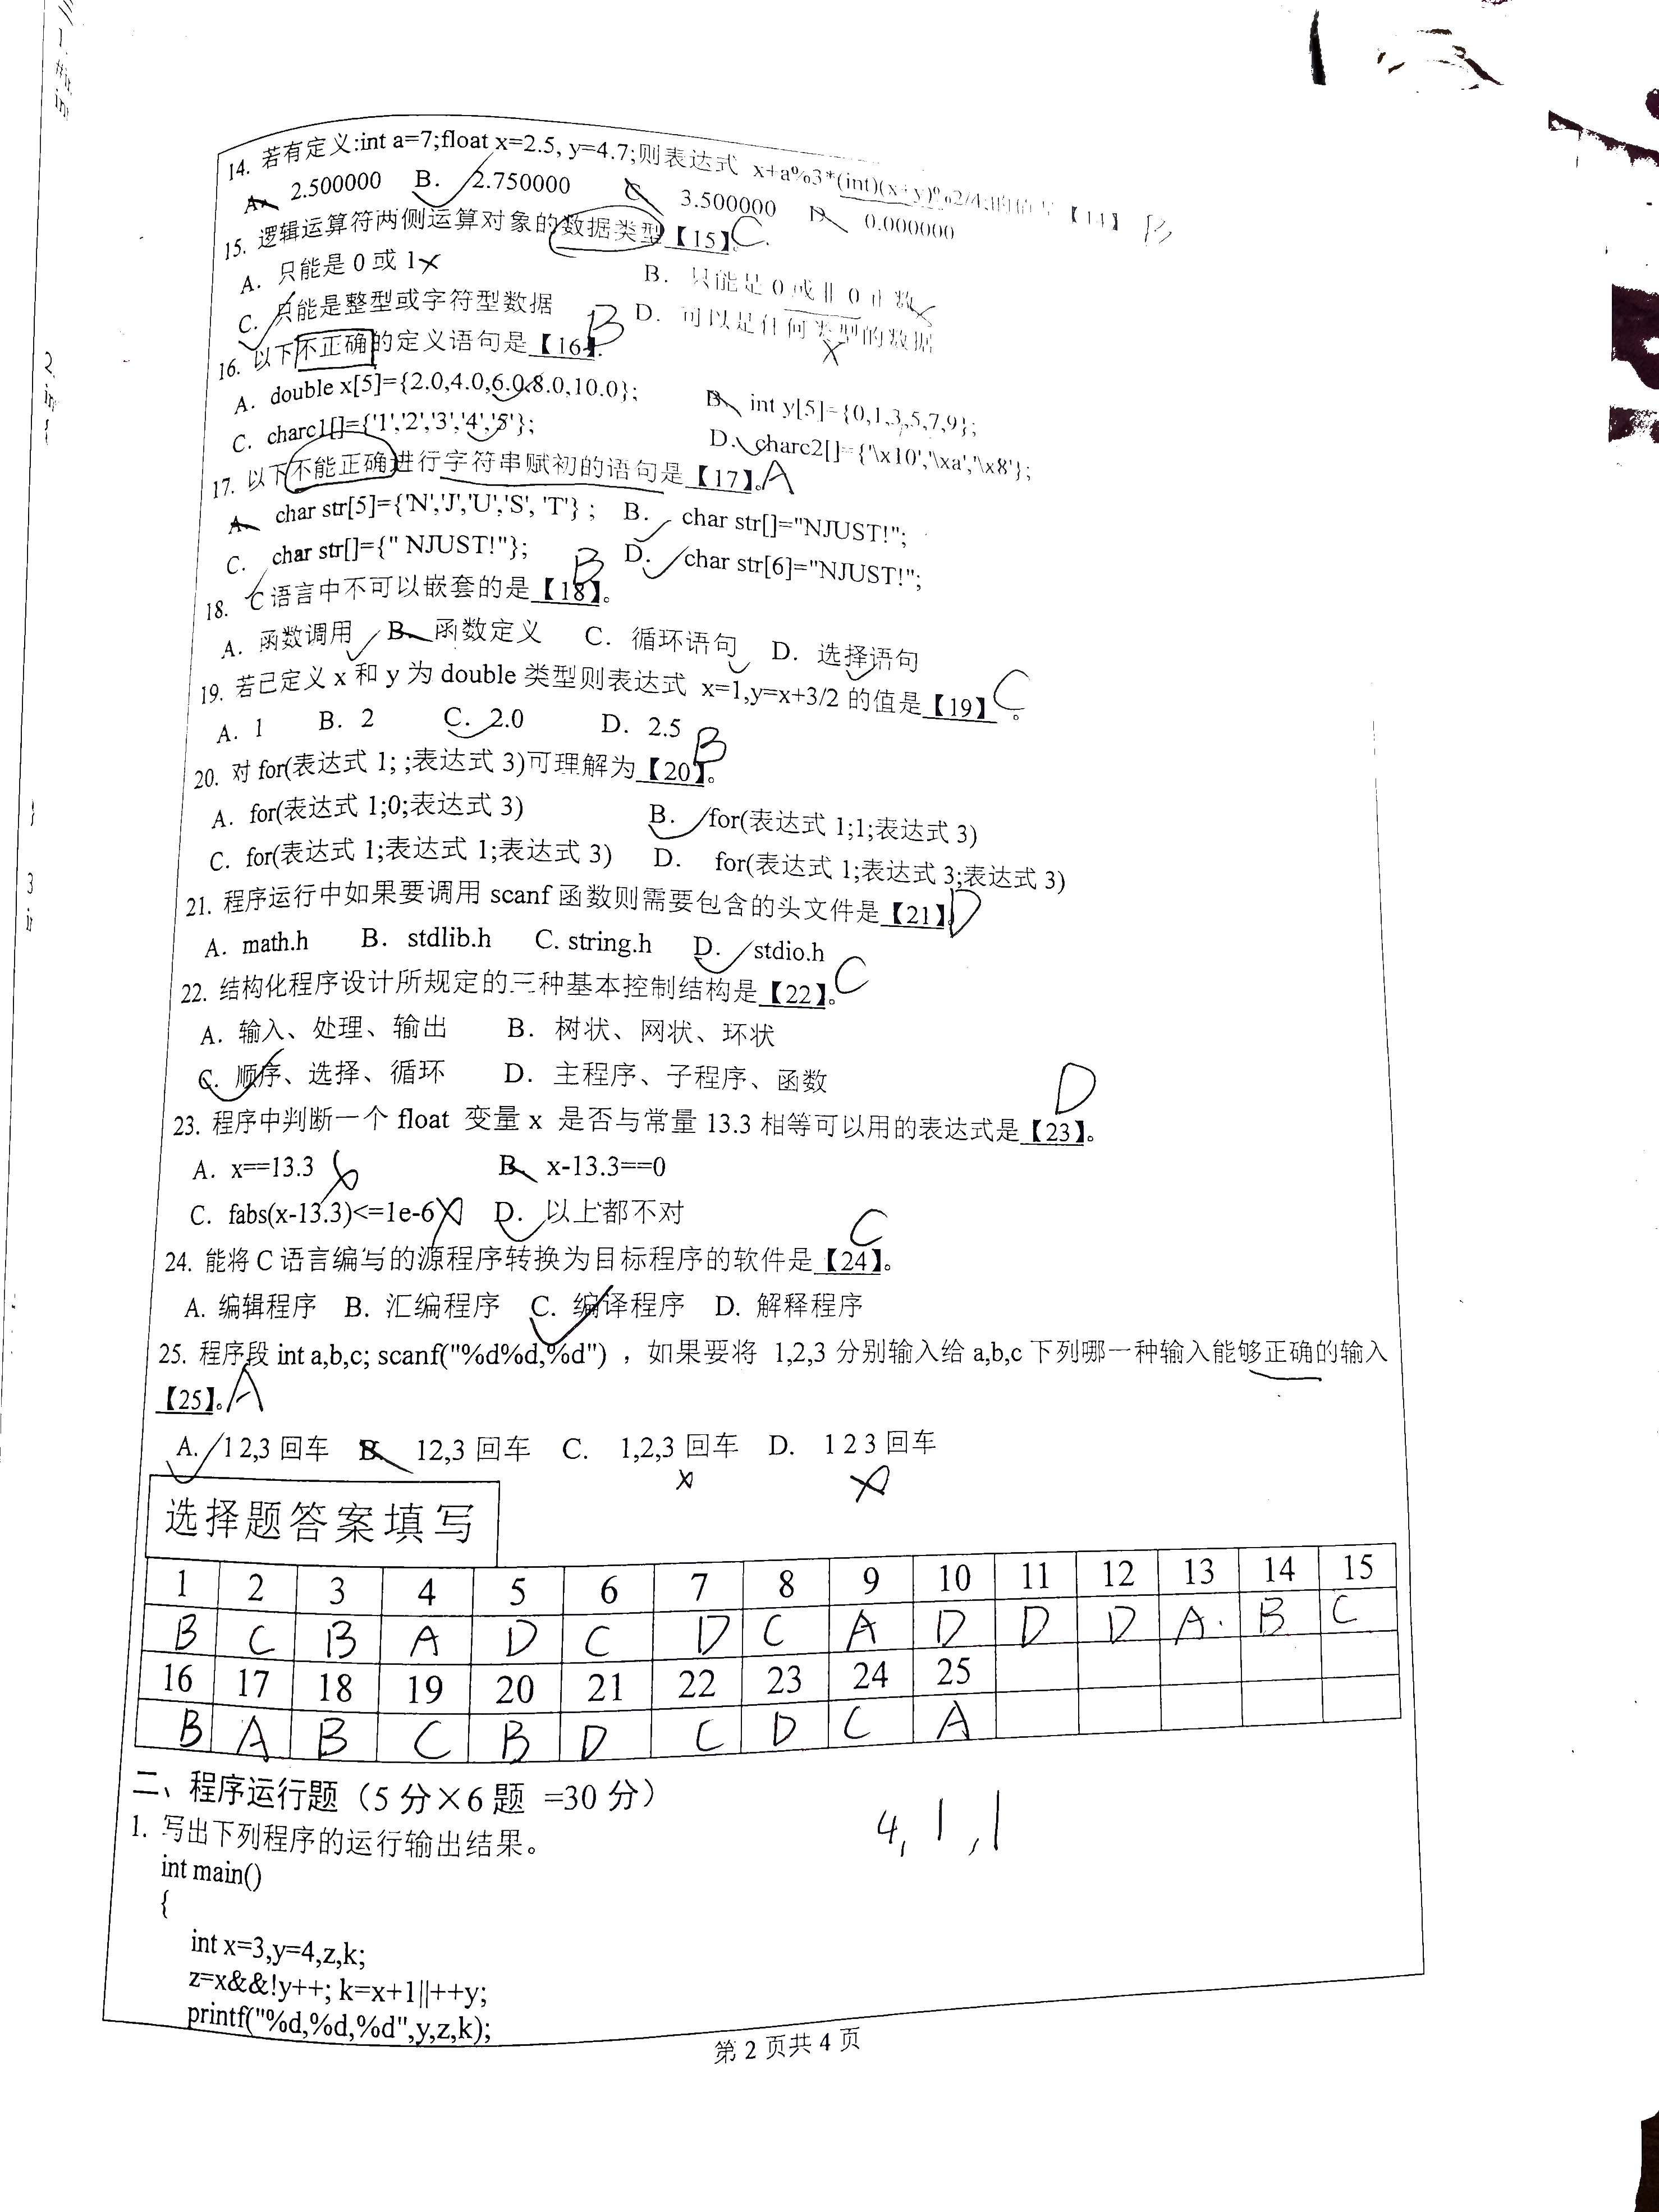 14. 若有定义:int a=7;float x=2.5, y=4.7;则表达式 x+a%3*(int)(x+y)%2/4的值是【14】 B
A. 2.500000 B. 2.750000 C. 3.500000 D. 0.000000
15. 逻辑运算符两侧运算对象的数据类型【15】。C.
A. 只能是 0 或 1 B. 只能是 0 或非 0 正数
C. 只能是整型或字符型数据 D. 可以是任何类型的数据
16. 以下不正确的定义语句是【16】. B
A. double x[5]={2.0,4.0,6.0,8.0,10.0}; B. int y[5]={0,1,3,5,7,9};
C. charc1[]={'1','2','3','4','5'}; D. charc2[]={'\x10','\xa','\x8'};
17. 以下不能正确进行字符串赋初的语句是【17】。A
A. char str[5]={'N','J','U','S', 'T'} ; B. char str[]="NJUST!";
C. char str[]={" NJUST!"}; D. char str[6]="NJUST!";
18. C 语言中不可以嵌套的是【18】。 B
A. 函数调用 B. 函数定义 C. 循环语句 D. 选择语句
19. 若已定义 x 和 y 为 double 类型则表达式 x=1,y=x+3/2 的值是【19】。 C
A. 1 B. 2 C. 2.0 D. 2.5
20. 对 for(表达式 1; ;表达式 3)可理解为【20】。 B
A. for(表达式 1;0;表达式 3) B. for(表达式 1;1;表达式 3)
C. for(表达式 1;表达式 1;表达式 3) D. for(表达式 1;表达式 3;表达式 3)
21. 程序运行中如果要调用 scanf 函数则需要包含的头文件是【21】。D
A. math.h B. stdlib.h C. string.h D. stdio.h
22. 结构化程序设计所规定的三种基本控制结构是【22】。C
A. 输入、处理、输出 B. 树状、网状、环状
C. 顺序、选择、循环 D. 主程序、子程序、函数
23. 程序中判断一个 float 变量 x 是否与常量 13.3 相等可以用的表达式是【23】。 D
A. x==13.3 B. x-13.3==0
C. fabs(x-13.3)<=1e-6 D. 以上都不对
24. 能将 C 语言编写的源程序转换为目标程序的软件是【24】。 C
A. 编辑程序 B. 汇编程序 C. 编译程序 D. 解释程序
25. 程序段 int a,b,c; scanf("%d%d,%d") ，如果要将 1,2,3 分别输入给 a,b,c 下列哪一种输入能够正确的输入
【25】。A
A. 1 2,3 回车 B. 12,3 回车 C. 1,2,3 回车 D. 1 2 3 回车
选择题答案填写
1 2 3 4 5 6 7 8 9 10 11 12 13 14 15
B C B A D C D C A D D D A. B C
16 17 18 19 20 21 22 23 24 25
B A B C B D C D C A
二、程序运行题（5 分×6 题 =30 分）
4, 1, 1
1. 写出下列程序的运行输出结果。
int main()
{
int x=3,y=4,z,k;
z=x&&!y++; k=x+1||++y;
printf("%d,%d,%d",y,z,k);
第 2 页共 4 页